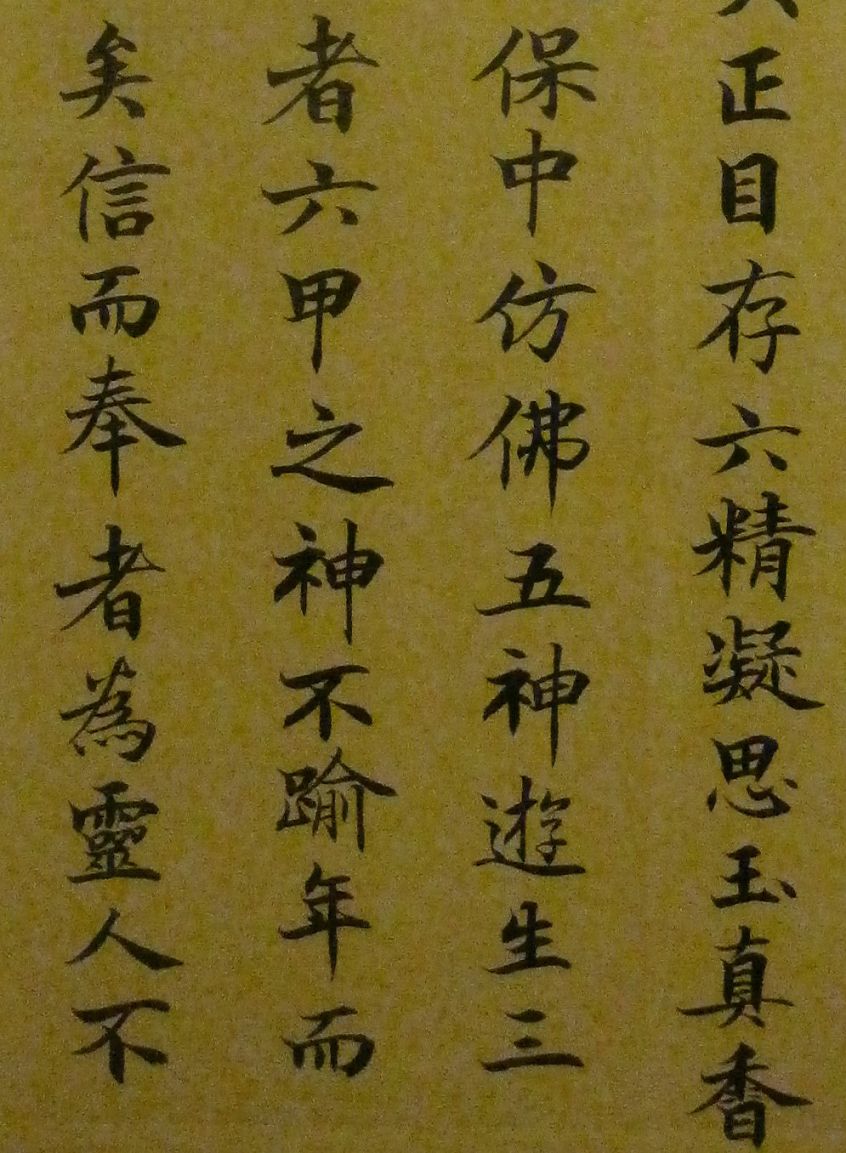 正目存六精凝思玉真香
保中仿佛五神遊生三
者六甲之神不踰年而
矣信而奉者為靈人不